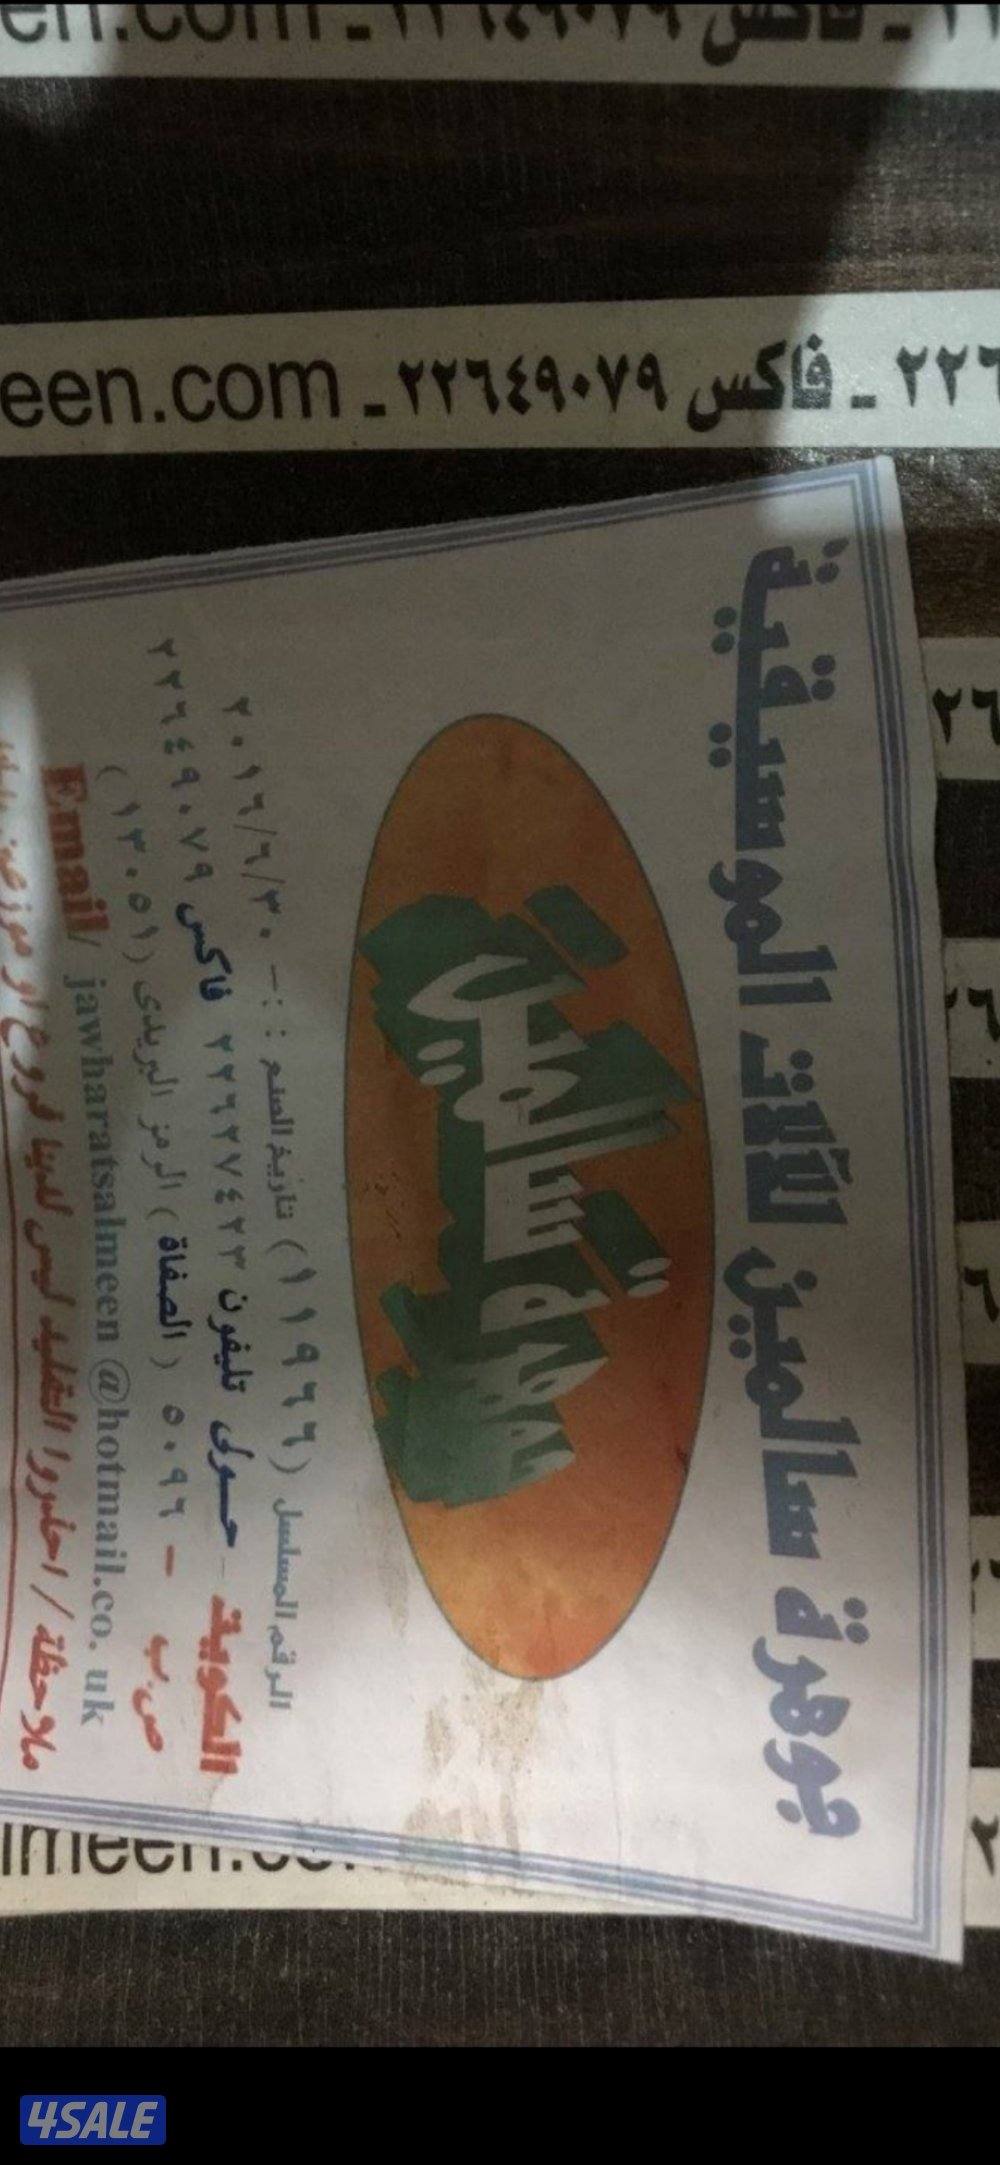 een.com ـ ٢٢٦٤٩٠٧٩ فاكس ـ
een.com ـ ٢٢٦٤٩٠٧٩ فاكس ـ ٢٢٦
جوهرة سالمين للآلات الموسيقية
جوهرة سالمين
الرقم المسلسل ( ١١٩٦٦ ) تاريخ الصنع : :ـ ٢٠١٦/٦/٣٠
الكويت - حولى تليفون ٢٢٦٢٧٤٢٣ فاكس ٢٢٦٤٩٠٧٩
ص.ب - ٥٠٩٦ ( الصفاة ) الرمز البريدى ( ١٣٠٥١ )
Email/ jawharatsalmeen @hotmail.co. uk
ملاحظة / احذروا التقليد ليس لدينا فروع او موزعين
lmeen.co
4SALE